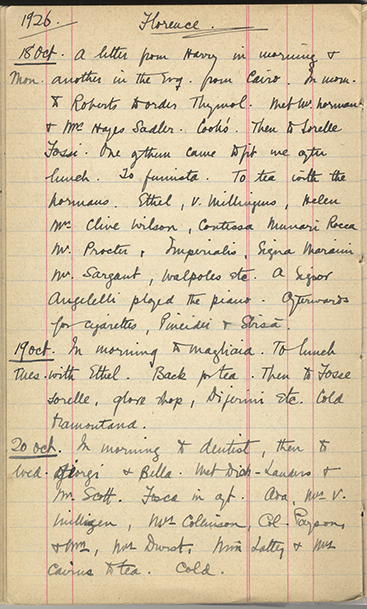 1926. Florence.
18 Oct. A letter from Harry in morning &
Mon. another in the Evg. from Cairo. In morn.
to Roberts to order Thymol. Met Mr. Norman
& Mrs Hayes Sadler. Cook's. Then to Sorelle
Fossi. One of them came to fit me after
lunch. To fumista. To tea with the
Normans. Ethel, V. Millingens, Helen
Mrs Clive Wilson, Contessa Munari Rocca
Mr. Procter, Imperialis, Signa
Mr. Sargant, Walpoles etc. A Signor
Angelelli played the piano. Afterwards
for cigarettes, Pineider &
19 Oct. In morning to To lunch
Tues. with Ethel. Back for tea. Then to Fosse
Sorelle, glove shop, etc. Cold
tramontana.
20 Oct. In morning to dentist, then to
Wed. Giorgi & Billa. Met Dick-Lauders &
Mr. Scott. Tosca in aft. Ada, Mrs V.
Millingen, Mrs Colenson, Col. Payson,
& Mrs, Mrs Durst, Miss Lattey & Mrs
Cairns to tea. Cold.